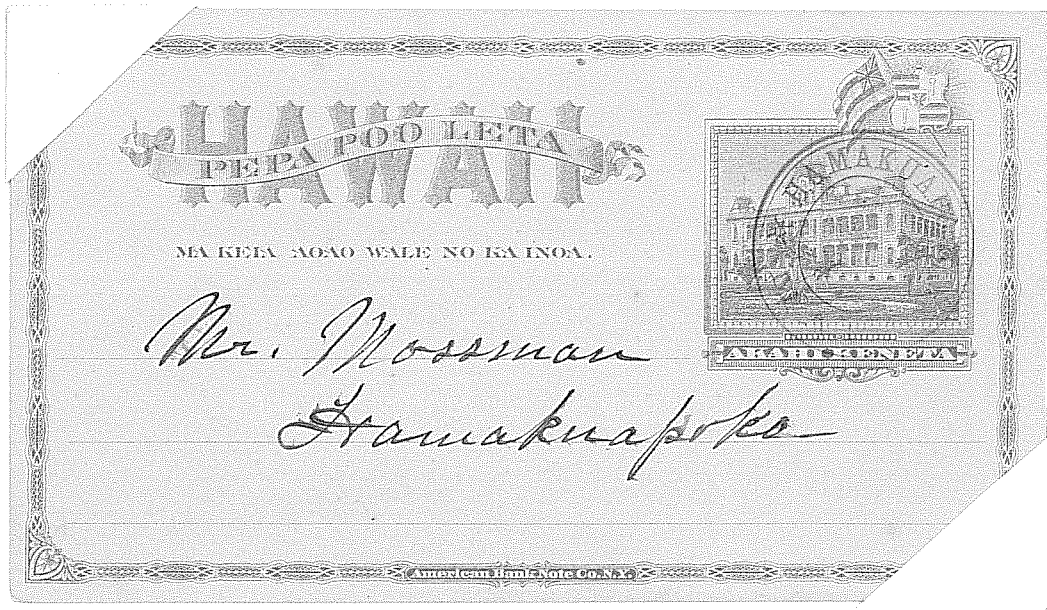 HAWAII
PEPA POO LETA
MA KEIA AOAO WALE NO KA INOA.
HAMAKUA
AKAHI KENETA
Mr. Mossman
Hamakuapoko
American Bank Note Co. N.Y.